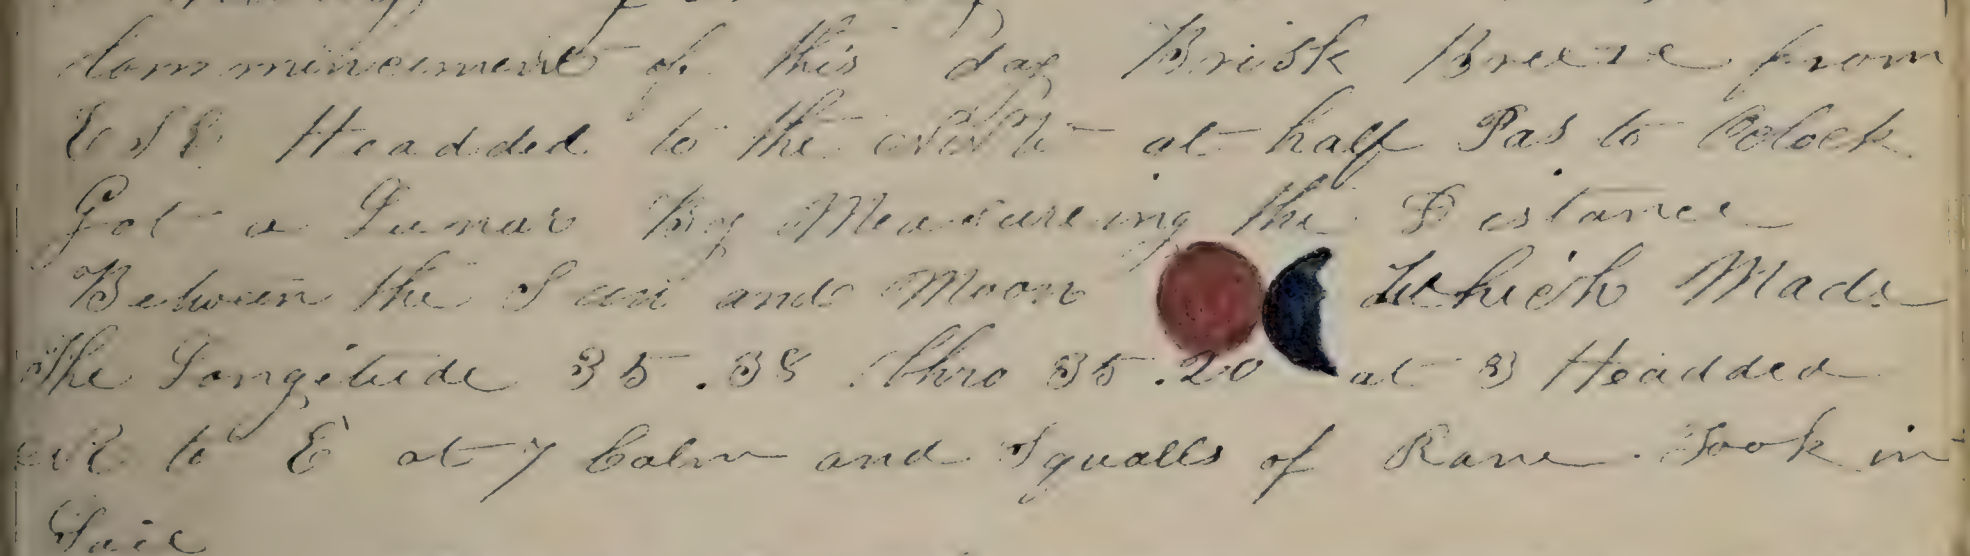 Commincement of this day Brisk Breeze from
ESE Headded to the at half Pas to Oclock
Got a Lunar By Measureing the Distance
Between the Sun and Moon Which Made
the Longitude 35.38 Chro 35.20 at 3 Headded
to E at 7 Calm and Squalls of Rane Took in
Sail